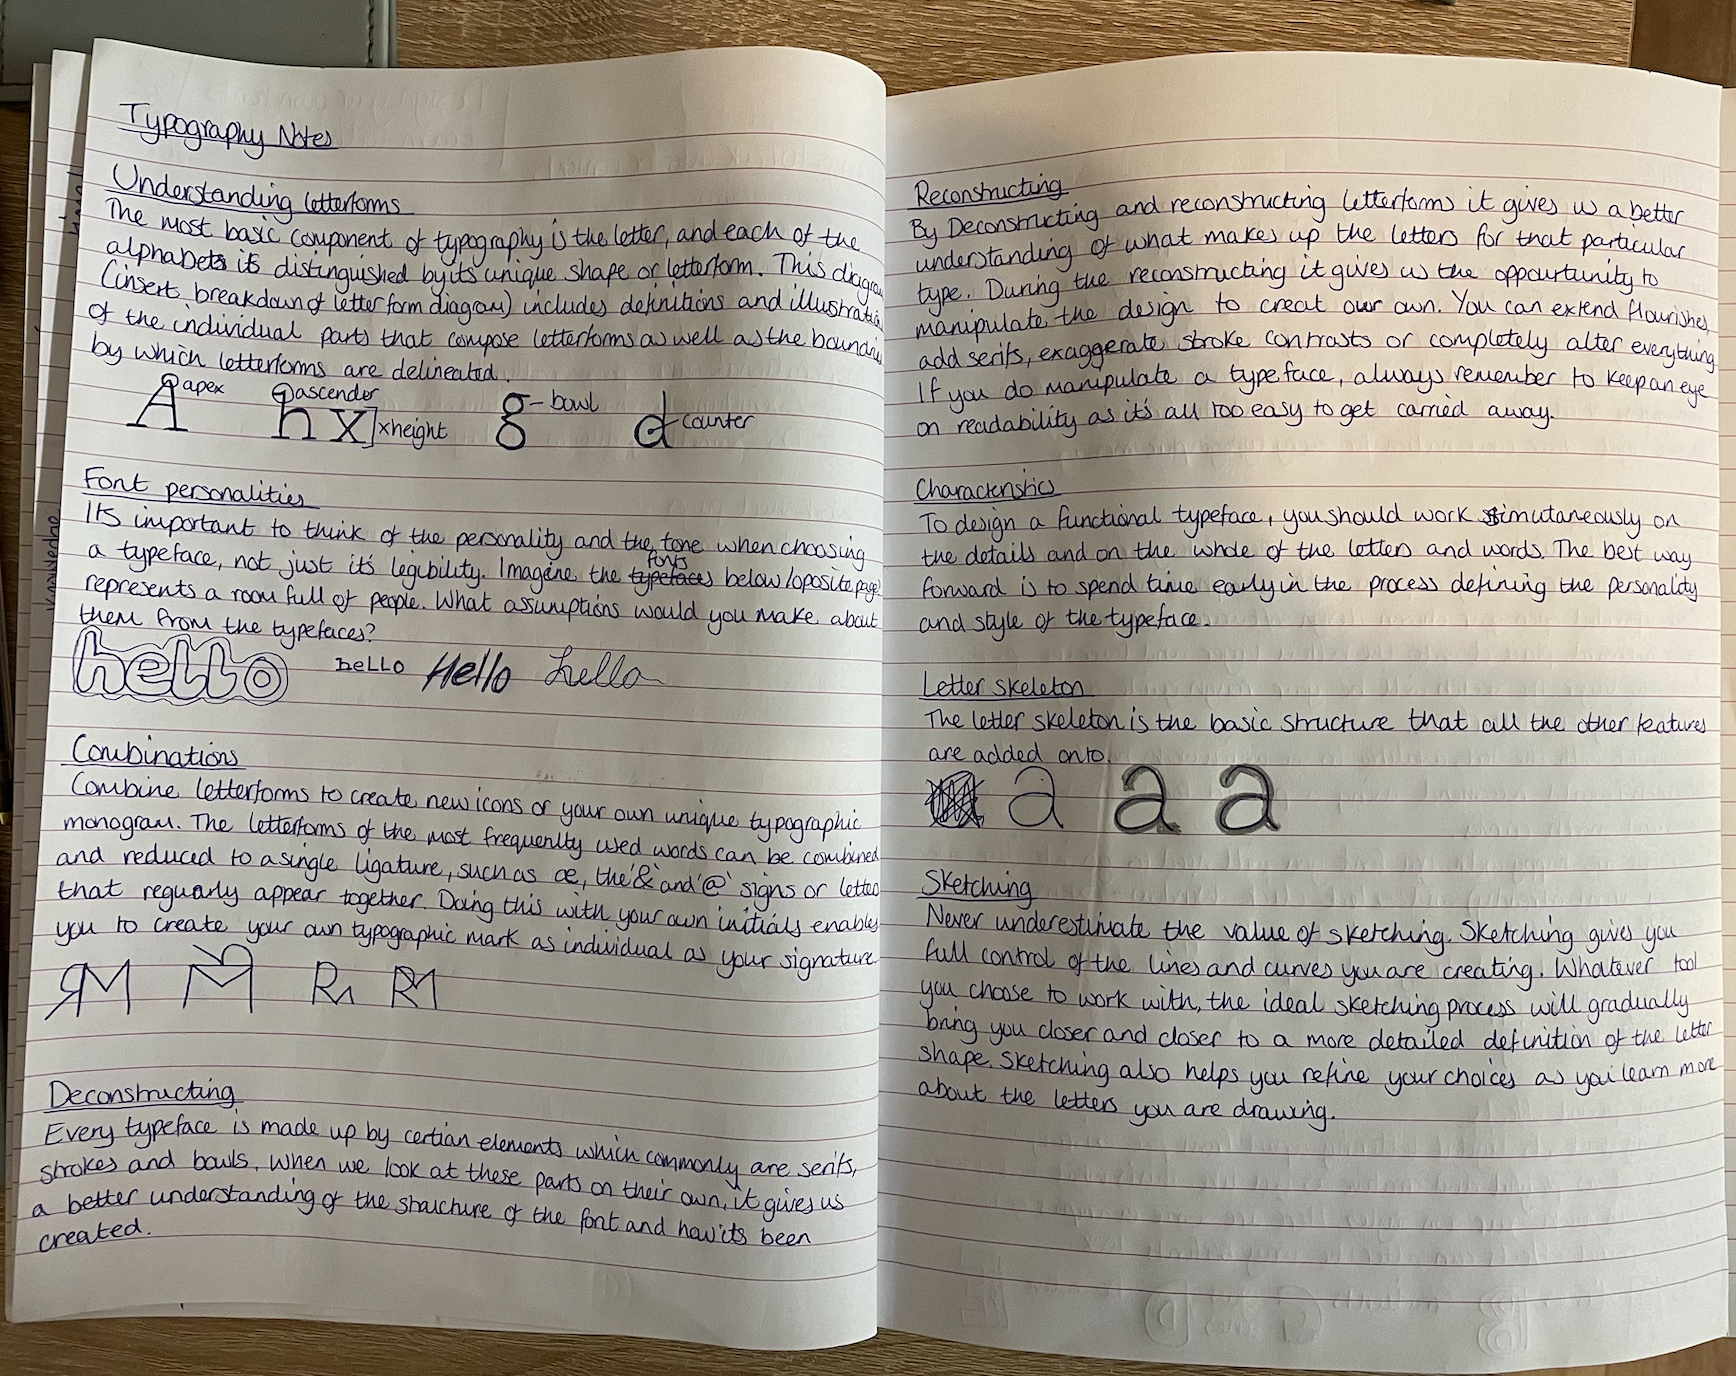 Typography Notes
Understanding letterforms
The most basic component of typography is the letter, and each of the
alphabets its distinguished by its unique shape or letterform. This diagram
(insert breakdown of letter form diagram) includes definitions and illustratio
of the individual parts that compose letterforms as well as the boundries
by which letterforms are delineated.
A apex
h ascender
x xheight
g bowl
d counter
Font personalities
Its important to think of the personality and the tone when choosing
a typeface, not just it's legibility. Imagine the fonts below/oposite page
represents a room full of people. What assumptions would you make about
them from the typefaces?
hello hello Hello hello
Combinations
Combine letterforms to create new icons or your own unique typographic
monogram. The letterforms of the most frequenlty used words can be combined
and reduced to a single ligature, such as æ, the '&' and '@' signs or letters
that reguarly appear together. Doing this with your own initials enables
you to create your own typographic mark as individual as your signature.
RM M RM RM
Deconstructing
Every typeface is made up by certian elements which commonly are serifs,
strokes and bowls. When we look at these parts on their own, it gives us
a better understanding of the structure of the font and how its been
created.
Reconstructing
By Deconstructing and reconstructing letterforms it gives us a better
understanding of what makes up the letters for that particular
type. During the reconstructing it gives us the oppourtunity to
manipulate the design to creat our own. You can extend flourishes,
add serifs, exaggerate stroke contrasts or completely alter everything.
If you do manipulate a typeface, always remember to keep an eye
on readability as it's all too easy to get carried away.
Characteristics
To design a functional typeface, you should work simutaneously on
the details and on the whole of the letters and words. The best way
forward is to spend time early in the process defining the personality
and style of the typeface.
Letter skeleton
The letter skeleton is the basic structure that all the other features
are added onto.
a a a
Sketching
Never underestimate the value of sketching. Sketching gives you
full control of the lines and curves you are creating. Whatever tool
you choose to work with, the ideal sketching process will gradually
bring you closer and closer to a more detailed definition of the letter
shape. Sketching also helps you refine your choices as you learn more
about the letters you are drawing.